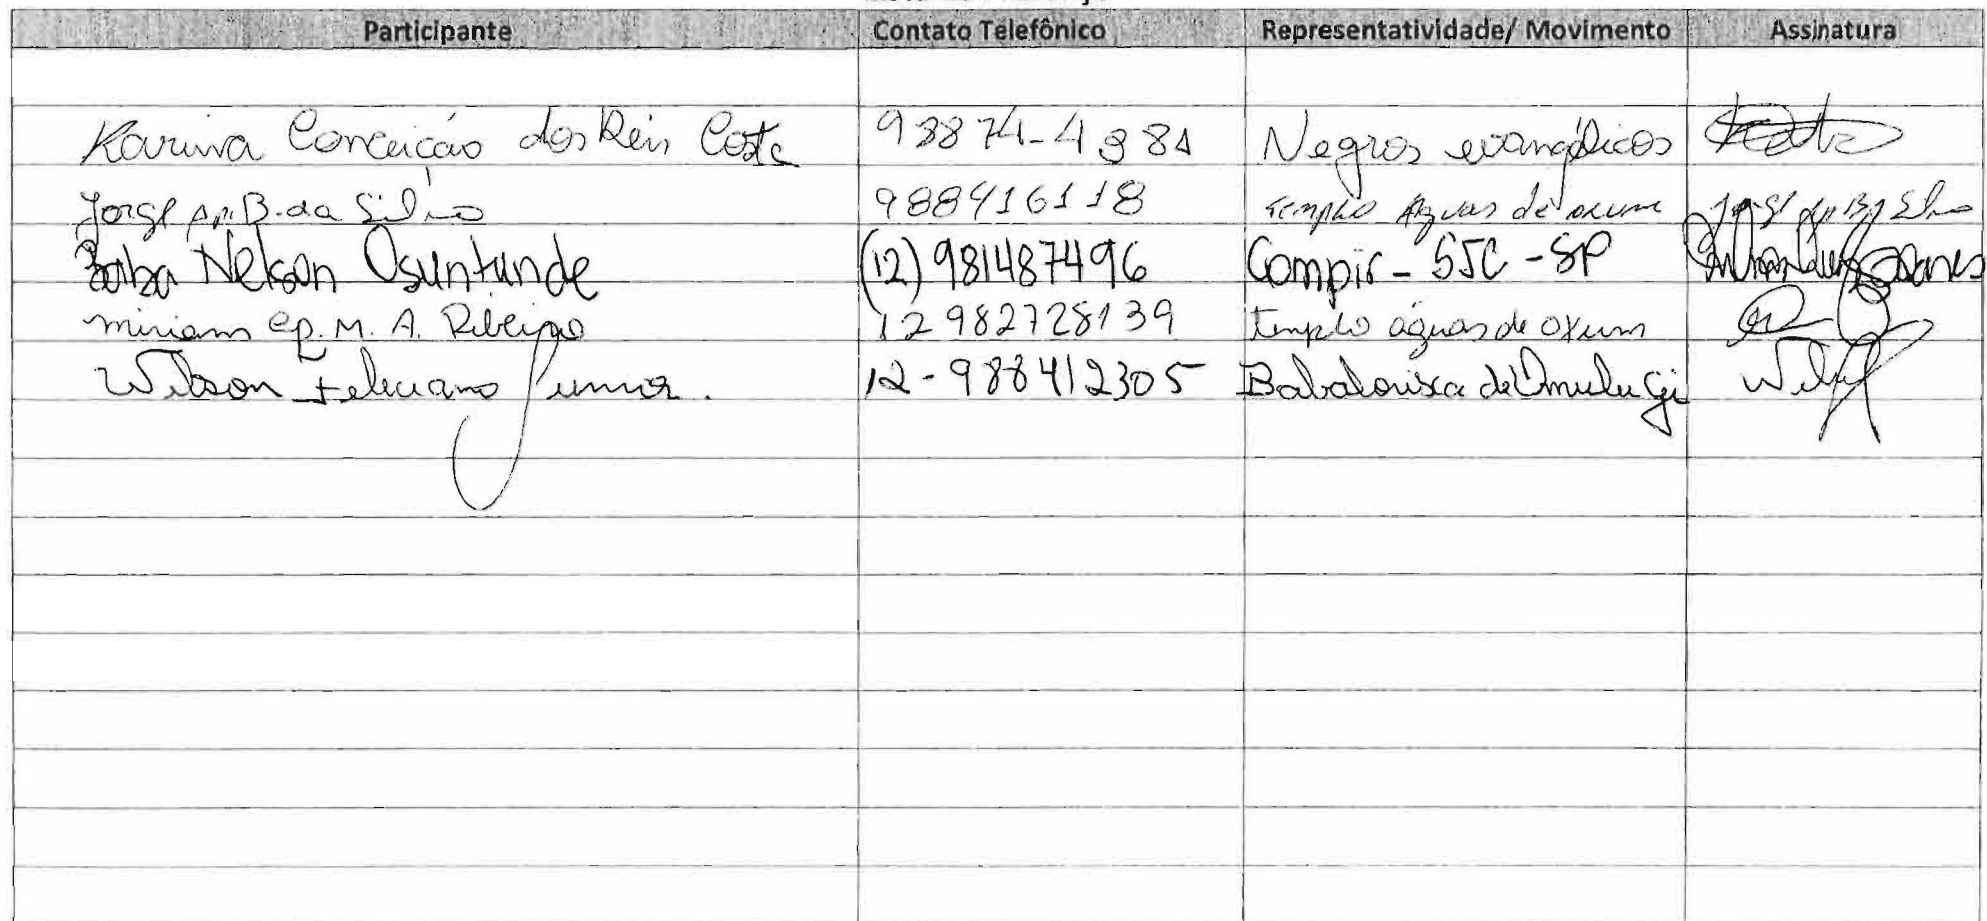 Participante Contato Telefônico Representatividade/ Movimento Assinatura
Karina Conceição dos Reis Costa 98874-4381 Negros evangélicos
Jorge Ap. B. da Silva 988416118 Templo Aguas de oxum Jorge Ap. B. da Silva
Baba Nelson Osuntunde (12) 981487496 Compir - SJC - SP
miriam Ap. M. A. Ribeiro 12 982728139 templo águas de oxum
Wilson Feliciano Junior. 12-988412305 Babalorixa de Omulu